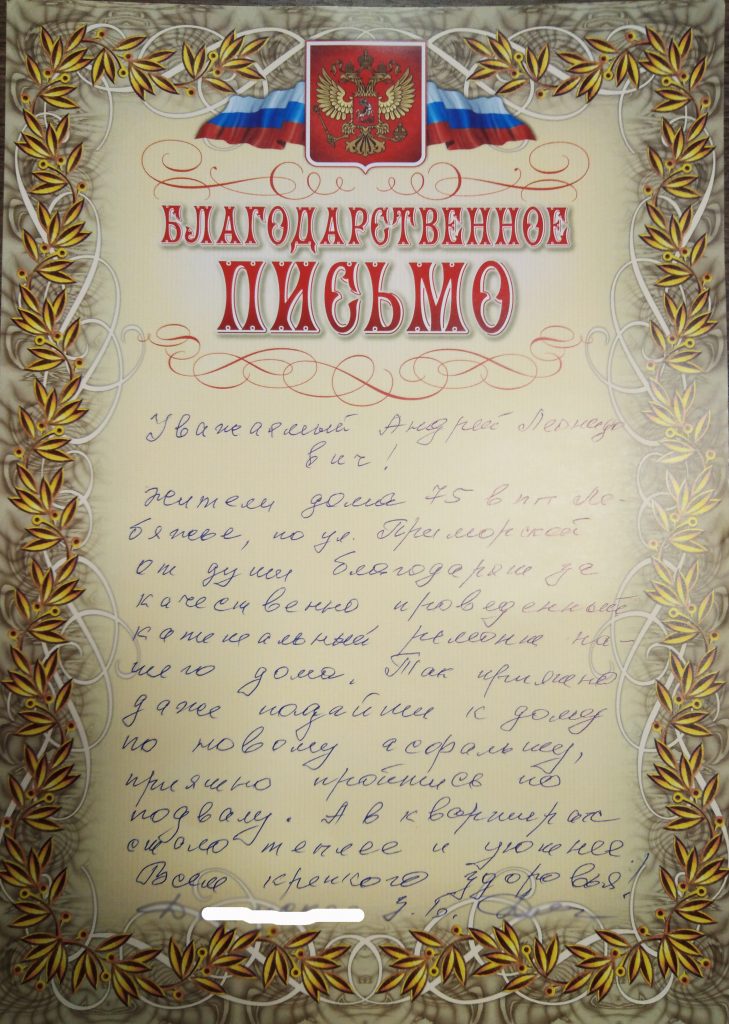 БЛАГОДАРСТВЕННОЕ
ПИСЬМО
Уважаемый Андрей Леонидо
вич!
Жители дома 75 в пгт Ле-
бяжье, по ул. Приморской
от души благодарят за
качественно проведенный
капитальный ремонт на-
шего дома. Так приятно
даже подойти к дому
по новому асфальту,
приятно пройтись по
подвалу. А в квартирах
стало теплее и уютнее!
Всем крепкого здоровья!